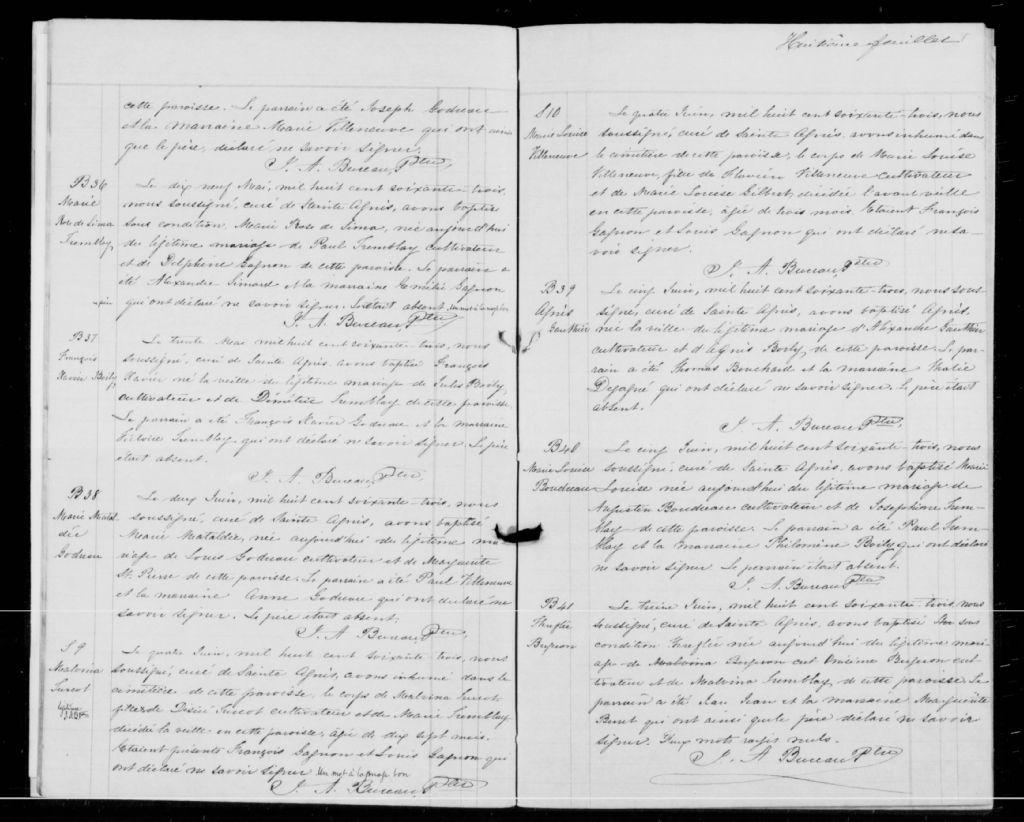 cette paroisse. Le parrain a été Joseph Godreau
et la marraine Marie Villeneuve qui ont ainsi
que le père, déclaré ne savoir signer.
J. A. Bureau Ptre
B36
Marie
Rose de Lima
Tremblay
Le dix neuf Mai, mil huit cent soixante-trois,
nous soussigné, curé de Sainte Agnès, avons baptisé
sous condition Marie Rose de Lima, née aujourd'hui
du légitime mariage de Paul Tremblay cultivateur
et de Delphine Gagnon de cette paroisse. Le parrain a
été Alexandre Simard et la marraine Emélie Gagnon
qui ont déclaré ne savoir signer. absent.
J. A. Bureau Ptre
B37
François
Xavier Boily
Le trente Mai mil huit cent soixante-trois, nous
soussigné, curé de Sainte Agnès avons baptisé François
Xavier né la veille du légitime mariage de Jules Boily,
cultivateur et de Démétise Tremblay de cette paroisse.
Le parrain a été François Xavier Godreau et la marraine
Victoire Tremblay qui ont déclaré ne savoir signer. Le père
était absent.
J. A. Bureau, Ptre
B38
Marie Matal
dée
Godreau
Le deux Juin, mil huit cent soixante-trois, nous
soussigné, curé de Sainte Agnès, avons baptisé
Marie Mataldée, née aujourd'hui du légitime ma-
riage de Louis Godreau cultivateur et de Marguerite
St. Pierre de cette paroisse. Le parrain a été Paul Villeneuve
et la marraine Anne Godreau qui ont déclaré ne
savoir signer. Le père était absent.
J. A. Bureau, Ptre
S 9
Malvina
Turcot
Le quatre Juin, mil huit cent soixante-trois, nous
soussigné, curé de Sainte Agnès, avons inhumé dans le
cimetière de cette paroisse, le corps de Malvina Turcot
fille de Désiré Turcot cultivateur et de Marie Tremblay
décédée la veille en cette paroisse âgée de dix sept mois.
Etaient présents François Gagnon et Louis Gagnon qui
ont déclaré ne savoir signer. Un mot à la marge bon
J. A. Bureau, Ptre
Huitième feuillet
S10
Marie Louise
Villeneuve
Le quatre Juin, mil huit cent soixante-trois, nous
soussigné, curé de Sainte Agnès, avons inhumé dans
le cimetière de cette paroisse, le corps de Marie Louise
Villeneuve, fille de Flavien Villeneuve cultivateur
et de Marie Louise Gilbert, décédée l'avant veille
en cette paroisse, âgée de trois mois. Etaient François
Gagnon et Louis Gagnon qui ont déclaré ne sa-
voir signer.
J. A. Bureau, Ptre
B39
Agnès
Gauthier
Le cinq Juin, mil huit cent soixante-trois, nous sous-
signé, curé de Sainte Agnès, avons baptisé Agnès,
née la veille du légitime mariage d'Alexandre Gauthier
cultivateur et d'Agnès Boily, de cette paroisse. Le par-
rain a été Thomas Bouchard et la marraine Thalie
Degagné qui ont déclaré ne savoir signer. Le père était
absent.
J. A. Bureau Ptre
B40
Marie Louise
Boudreau
Le cinq Juin, mil huit cent soixante-trois, nous
soussigné curé de Sainte Agnès, avons baptisé Marie
Louise née aujourd'hui du légitime mariage de
Augustin Boudreau cultivateur et de Josephine Trem-
blay de cette paroisse. Le parrain a été Paul Trem-
blay et la marraine Philomène Boily qui ont déclaré
ne savoir signer. Le parrain était absent.
J. A. Bureau Ptre
B41
Le treize Juin, mil huit cent soixante-trois, nous
soussigné, curé de Sainte Agnès, avons baptisé sous
condition née aujourd'hui du légitime mari-
age de cul-
tivateur et de Malvina Tremblay, de cette paroisse. Le
parrain a été Jean Jean et la marraine Marguérite
qui ont ainsi que le père déclaré ne savoir
signer. Deux mots rayés nuls.
J. A Bureau Ptre